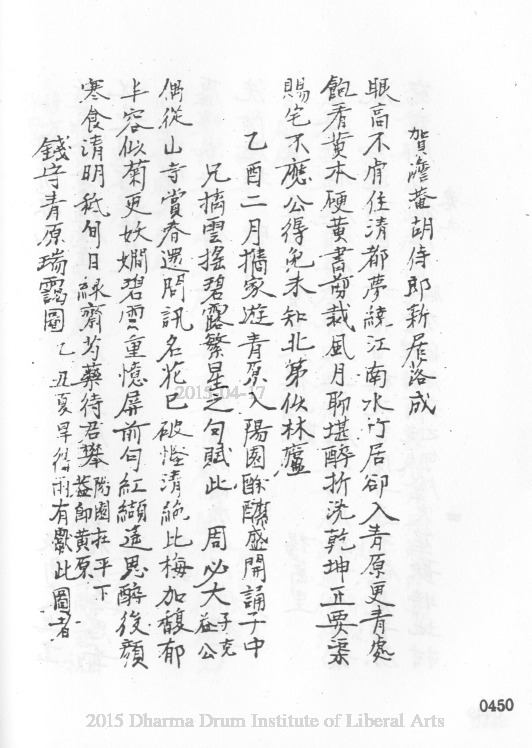 賀澹菴胡侍郎新居落成
眼高不肯住清都夢繞江南水竹居卻入青原更青處
飽看黃本硬黃書剪裁風月聊堪醉折洗乾坤正要渠
賜宅不應公得免未知北第似林廬
乙酉二月攜家遊青原入陽園酴醾盛開誦子中
兄摘雲搖碧露繁星之句賦此 周必大子充益公
偶從山寺賞春還問訊名花已破慳清絶比梅加馥郁
丰容似菊更妖嫺碧雲重憶屏前句紅纈遙思醉後顏
寒食清明秪旬日綠齋芍藥待君攀陽園在平下益即黃原
錢守青原瑞靄圖 乙丑夏旱禱雨有獻此圖者
2015-04-17
0450
2015 Dharma Drum Institute of Liberal Arts